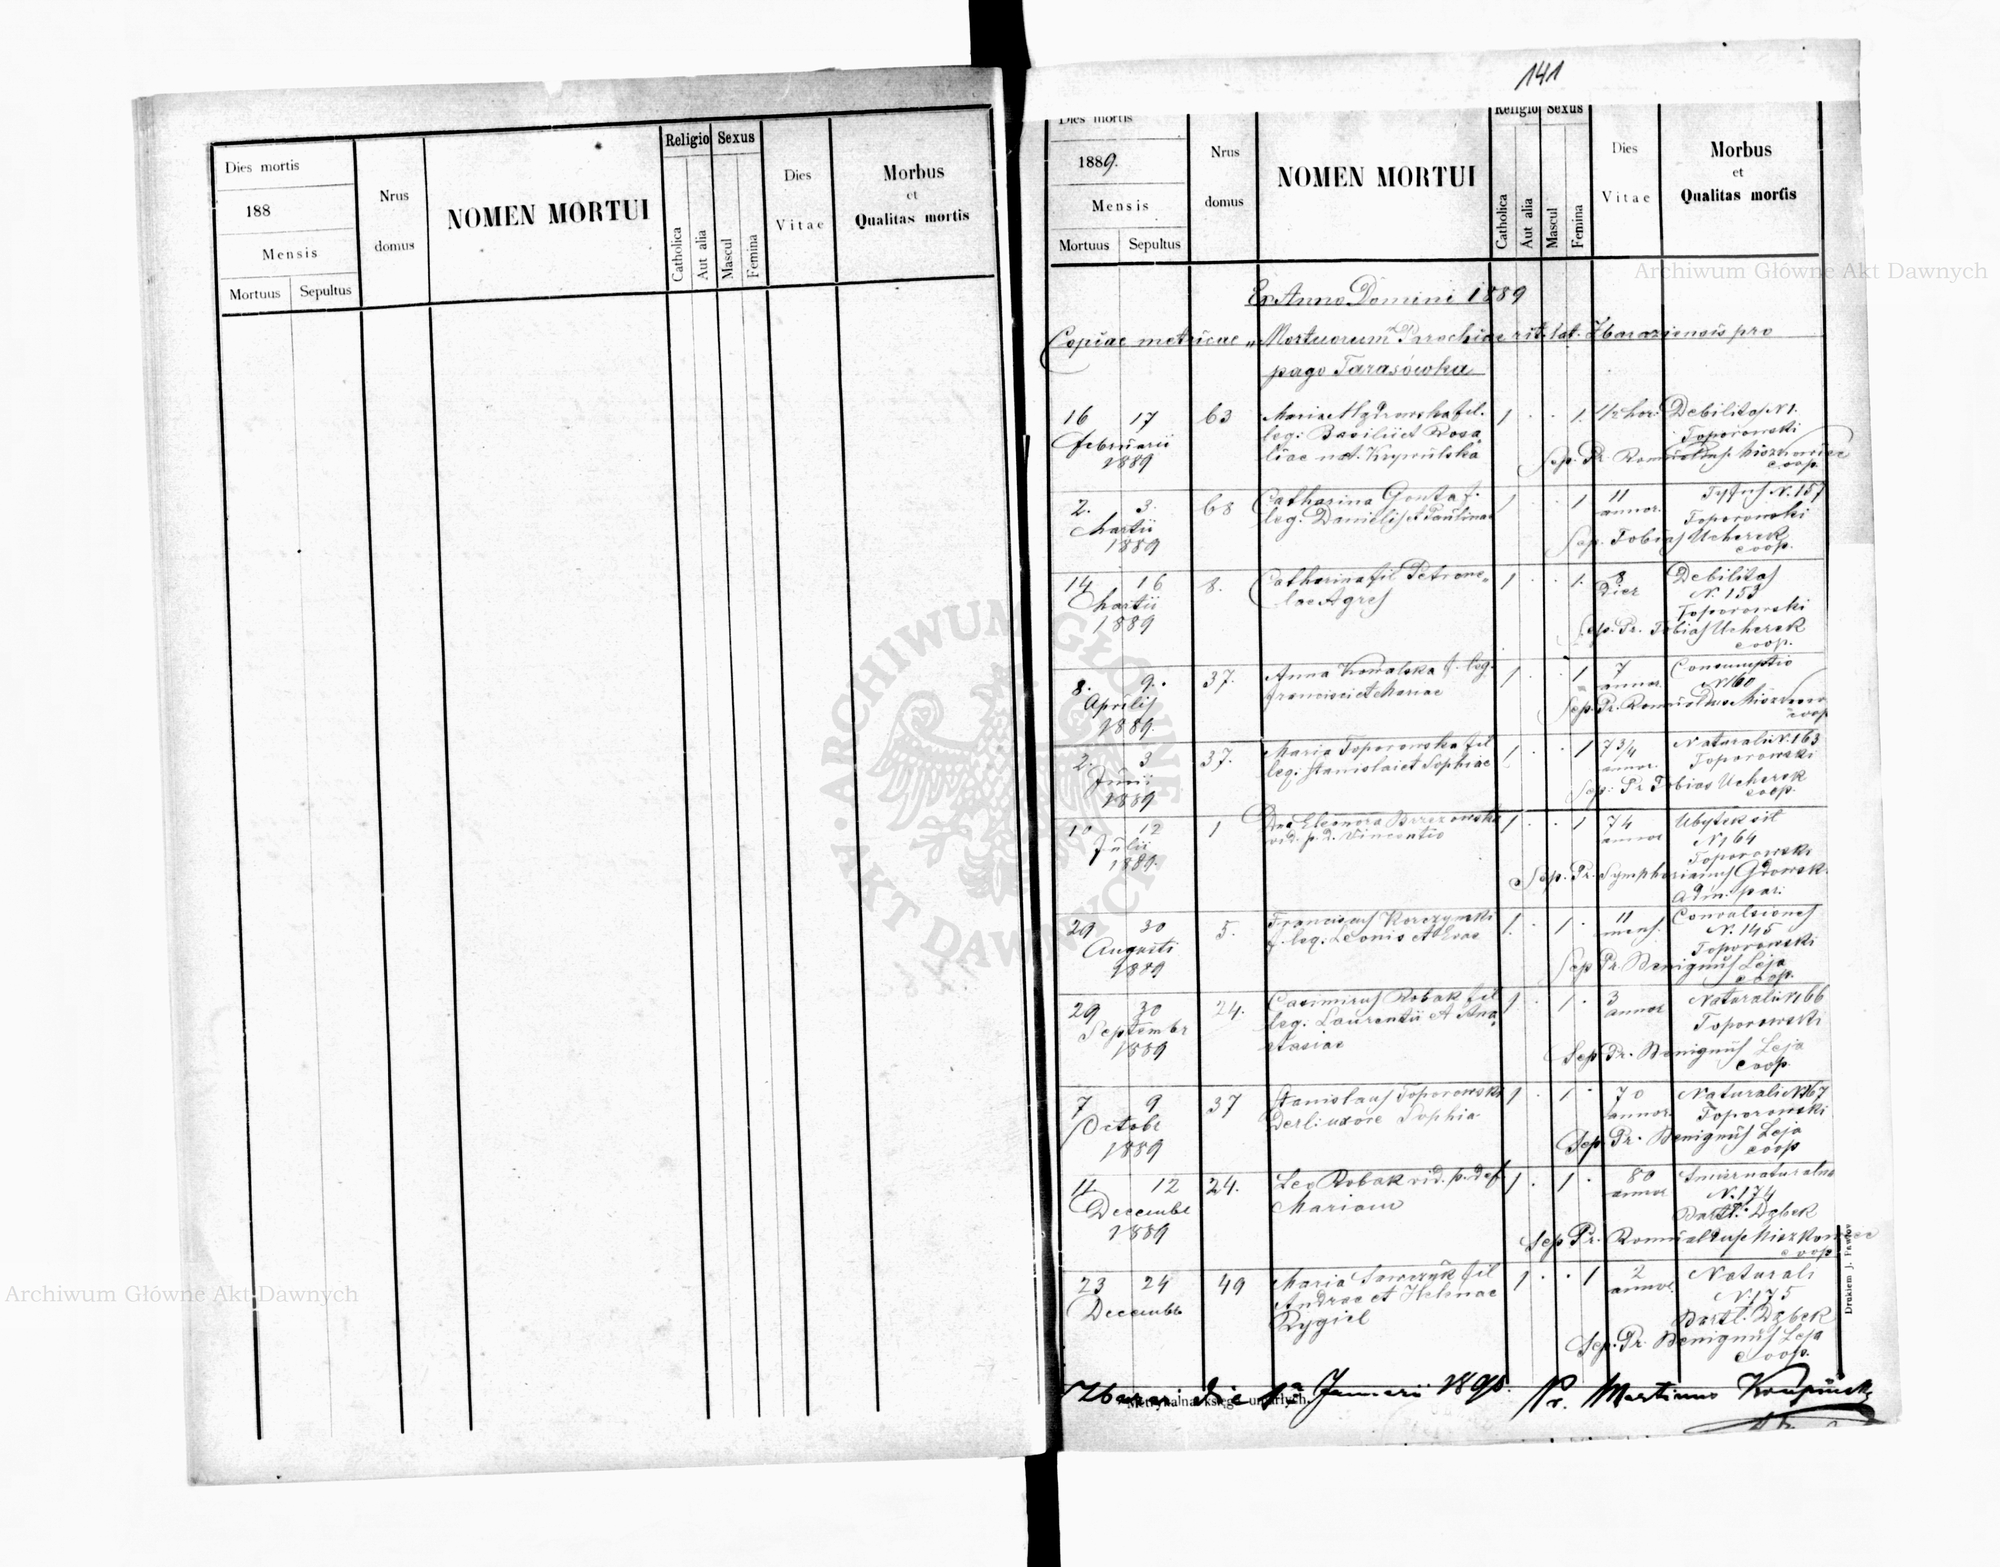 Dies mortis
188
Mensis
Mortuus Sepultus
Nrus
domus
NOMEN MORTUI
Religio
Catholica
Aut alia
Sexus
Mascul
Femina
Dies
Vitae
Morbus
et
Qualitas mortis
141
Dies mortis
1889.
Mensis
Mortuus Sepultus
Nrus
domus
NOMEN MORTUI
Religio
Catholica
Aut alia
Sexus
Mascul
Femina
Dies
Vitae
Morbus
et
Qualitas mortis
Anno Domini 1889
Copiae metricae Mortuorum Parochiae rit. lat. Zbaraziensis pro
pago Tarasówka
16 17 63 Maria fil. 1 · · 1 1/2 hor. Debilitas N 1.
Februarii leg: Basilii et Rosa Toporowski
1889 liae nat. Krywulska
Sep. Pr. Romualdus coop.
2. 3. 68 Catharina Gonta f. 1 · · 1 11 Tyfus N. 157
Martii leg. Danielis et Paulinae annor. Toporowski
1889 Sep. Tobias Ucherek
coop.
14 16 8. Catharina fil Petrone- 1 · · 1. 8 Debilitas
Martii lae Agres Dies N. 153
1889 Toporowski
Sep. Pr. Tobias Ucherek
coop.
8. 9. 37. Anna Kowalska f. leg. 1 · · 1 7 Consumptio
Aprilis Francisci et Mariae annor. N 160
1889. Sep. Pr. Romualdus
coop
2. 3 37. Maria Toporowska fil 1 · · 1 73/4 Naturalis N. 163
Junii leg. Stanislai et Sophiae annor. Toporowski
1889 Sep. Pr Tobias Ucherek
coop.
10 12 1 Eleonora Brzezowska 1 · · 1 74 Ubytek sił
Julii vid. p. d. Vincentio annor N 164
1889. Toporowski
Sep. Pr. Symphorianus
Adm. par.
29 30 5. Franciscus Korczynski 1 · 1 · 11 Convulsiones
Augusti f. leg. Leonis et Evae mens. N. 145
1889 Toporowski
Sep Pr. Benignus Leja
coop.
29 30 24. Casimirus Robak fil 1 · 1 · 3 Naturalis N 166
Septembr leg. Laurentii et Ana annor Toporowski
1889 stasiae
Sep. Pr. Benignus Leja
coop.
7 9 37 Stanislaus Toporowski 1 · 1 · 70 Naturalis N 167
Octobr uxore Sophia annor. Toporowski
1889 Sep. Pr. Benignus Leja
coop
11. 12 24. Leo Robak vid. p. def. 1 · 1 · 80 naturalna
Decembr Mariam annor N. 174
1889 Bartł. Dąbek
Sep Pr. Romualdus
coop
23 24 49 Maria Sawczyk fil 1 · · 1 2 Naturalis
Decembr Andrae et Helenae annor. N. 175
Rygiel Bartł. Dąbek
Sep. Pr. Benignus Leja
coop.
die 1a Januarii 1890. Pr. Martinus
Metrykalna księga umarłych.
Drukiem J. Pawłow
ARCHIWUM GŁÓWNE · AKT DAWNYCH ·
Archiwum Główne Akt Dawnych
Archiwum Główne Akt Dawnych